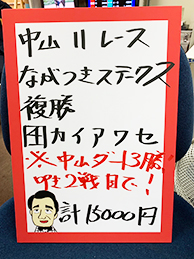 中山11レース
ながつきステークス
複勝
田カイアワセ
※中山ダート3勝!
叩き2戦目で!
計15000円